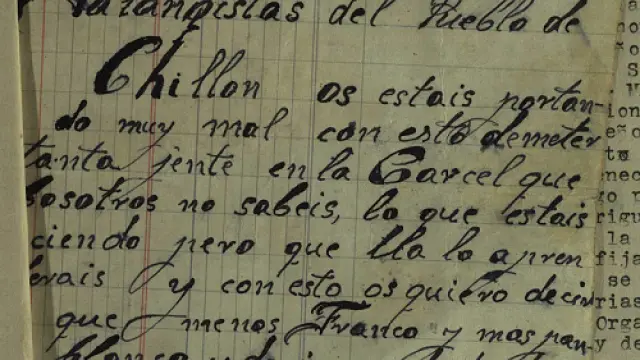 Falangistas del Pueblo de
Chillon os estais portan-
do muy mal con esto demeter
tanta jente en la Carcel que
bosotros no sabeis, lo que estais
ciendo pero que lla lo apren
derais y con esto os quiero decir
que menos Franco y mas pan
blanco